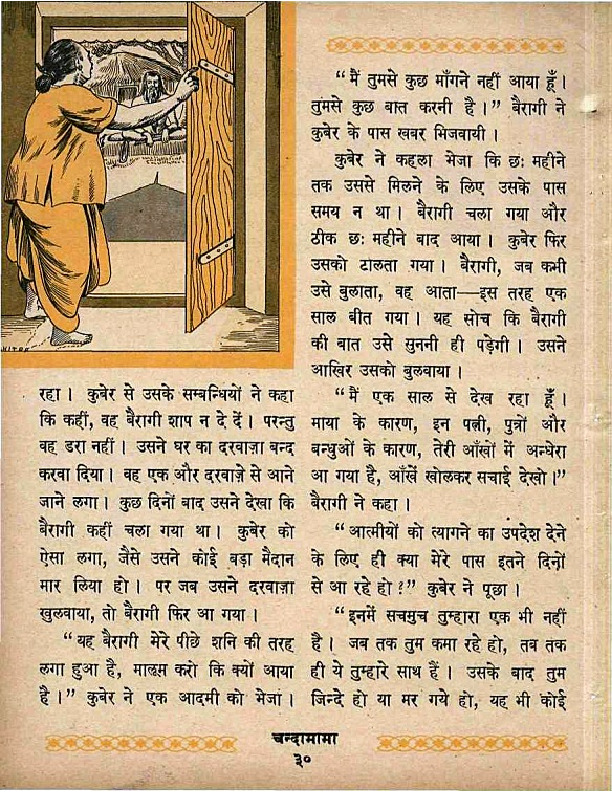 रहा । कुबेर से उसके सम्बन्धियों ने कहा
कि कहीं, वह बैरागी शाप न दे दें । परन्तु
वह डरा नहीं । उसने घर का दरवाज़ा बन्द
करवा दिया । वह एक और दरवाज़े से आने
जाने लगा । कुछ दिनों बाद उसने देखा कि
बैरागी कहीं चला गया था । कुबेर को
ऐसा लगा, जैसे उसने कोई बड़ा मैदान
मार लिया हो । पर जब उसने दरवाज़ा
खुलवाया, तो बैरागी फिर आ गया ।
“यह बैरागी मेरे पीछे शनि की तरह
लगा हुआ है, मालूम करो कि क्यों आया
है ।” कुबेर ने एक आदमी को भेजा ।
“मैं तुमसे कुछ माँगने नहीं आया हूँ ।
तुमसे कुछ बात करनी है ।” बैरागी ने
कुबेर के पास खबर भिजवायी ।
कुबेर ने कहला भेजा कि छः महीने
तक उससे मिलने के लिए उसके पास
समय न था । बैरागी चला गया और
ठीक छः महीने बाद आया । कुबेर फिर
उसको टालता गया । बैरागी, जब कभी
उसे बुलाता, वह आता—इस तरह एक
साल बीत गया । यह सोच कि बैरागी
की बात उसे सुननी ही पड़ेगी । उसने
आखिर उसको बुलवाया ।
“मैं एक साल से देख रहा हूँ ।
माया के कारण, इन पत्नी, पुत्रों और
बन्धुओं के कारण, तेरी आँखों में अन्धेरा
आ गया है, आँखें खोलकर सचाई देखो ।”
बैरागी ने कहा ।
“आत्मीयों को त्यागने का उपदेश देने
के लिए ही क्या मेरे पास इतने दिनों
से आ रहे हो ?” कुबेर ने पूछा ।
“इनमें सचमुच तुम्हारा एक भी नहीं
है । जब तक तुम कमा रहे हो, तब तक
ही ये तुम्हारे साथ हैं । उसके बाद तुम
जिन्दे हो या मर गये हो, यह भी कोई
चन्दामामा
३०